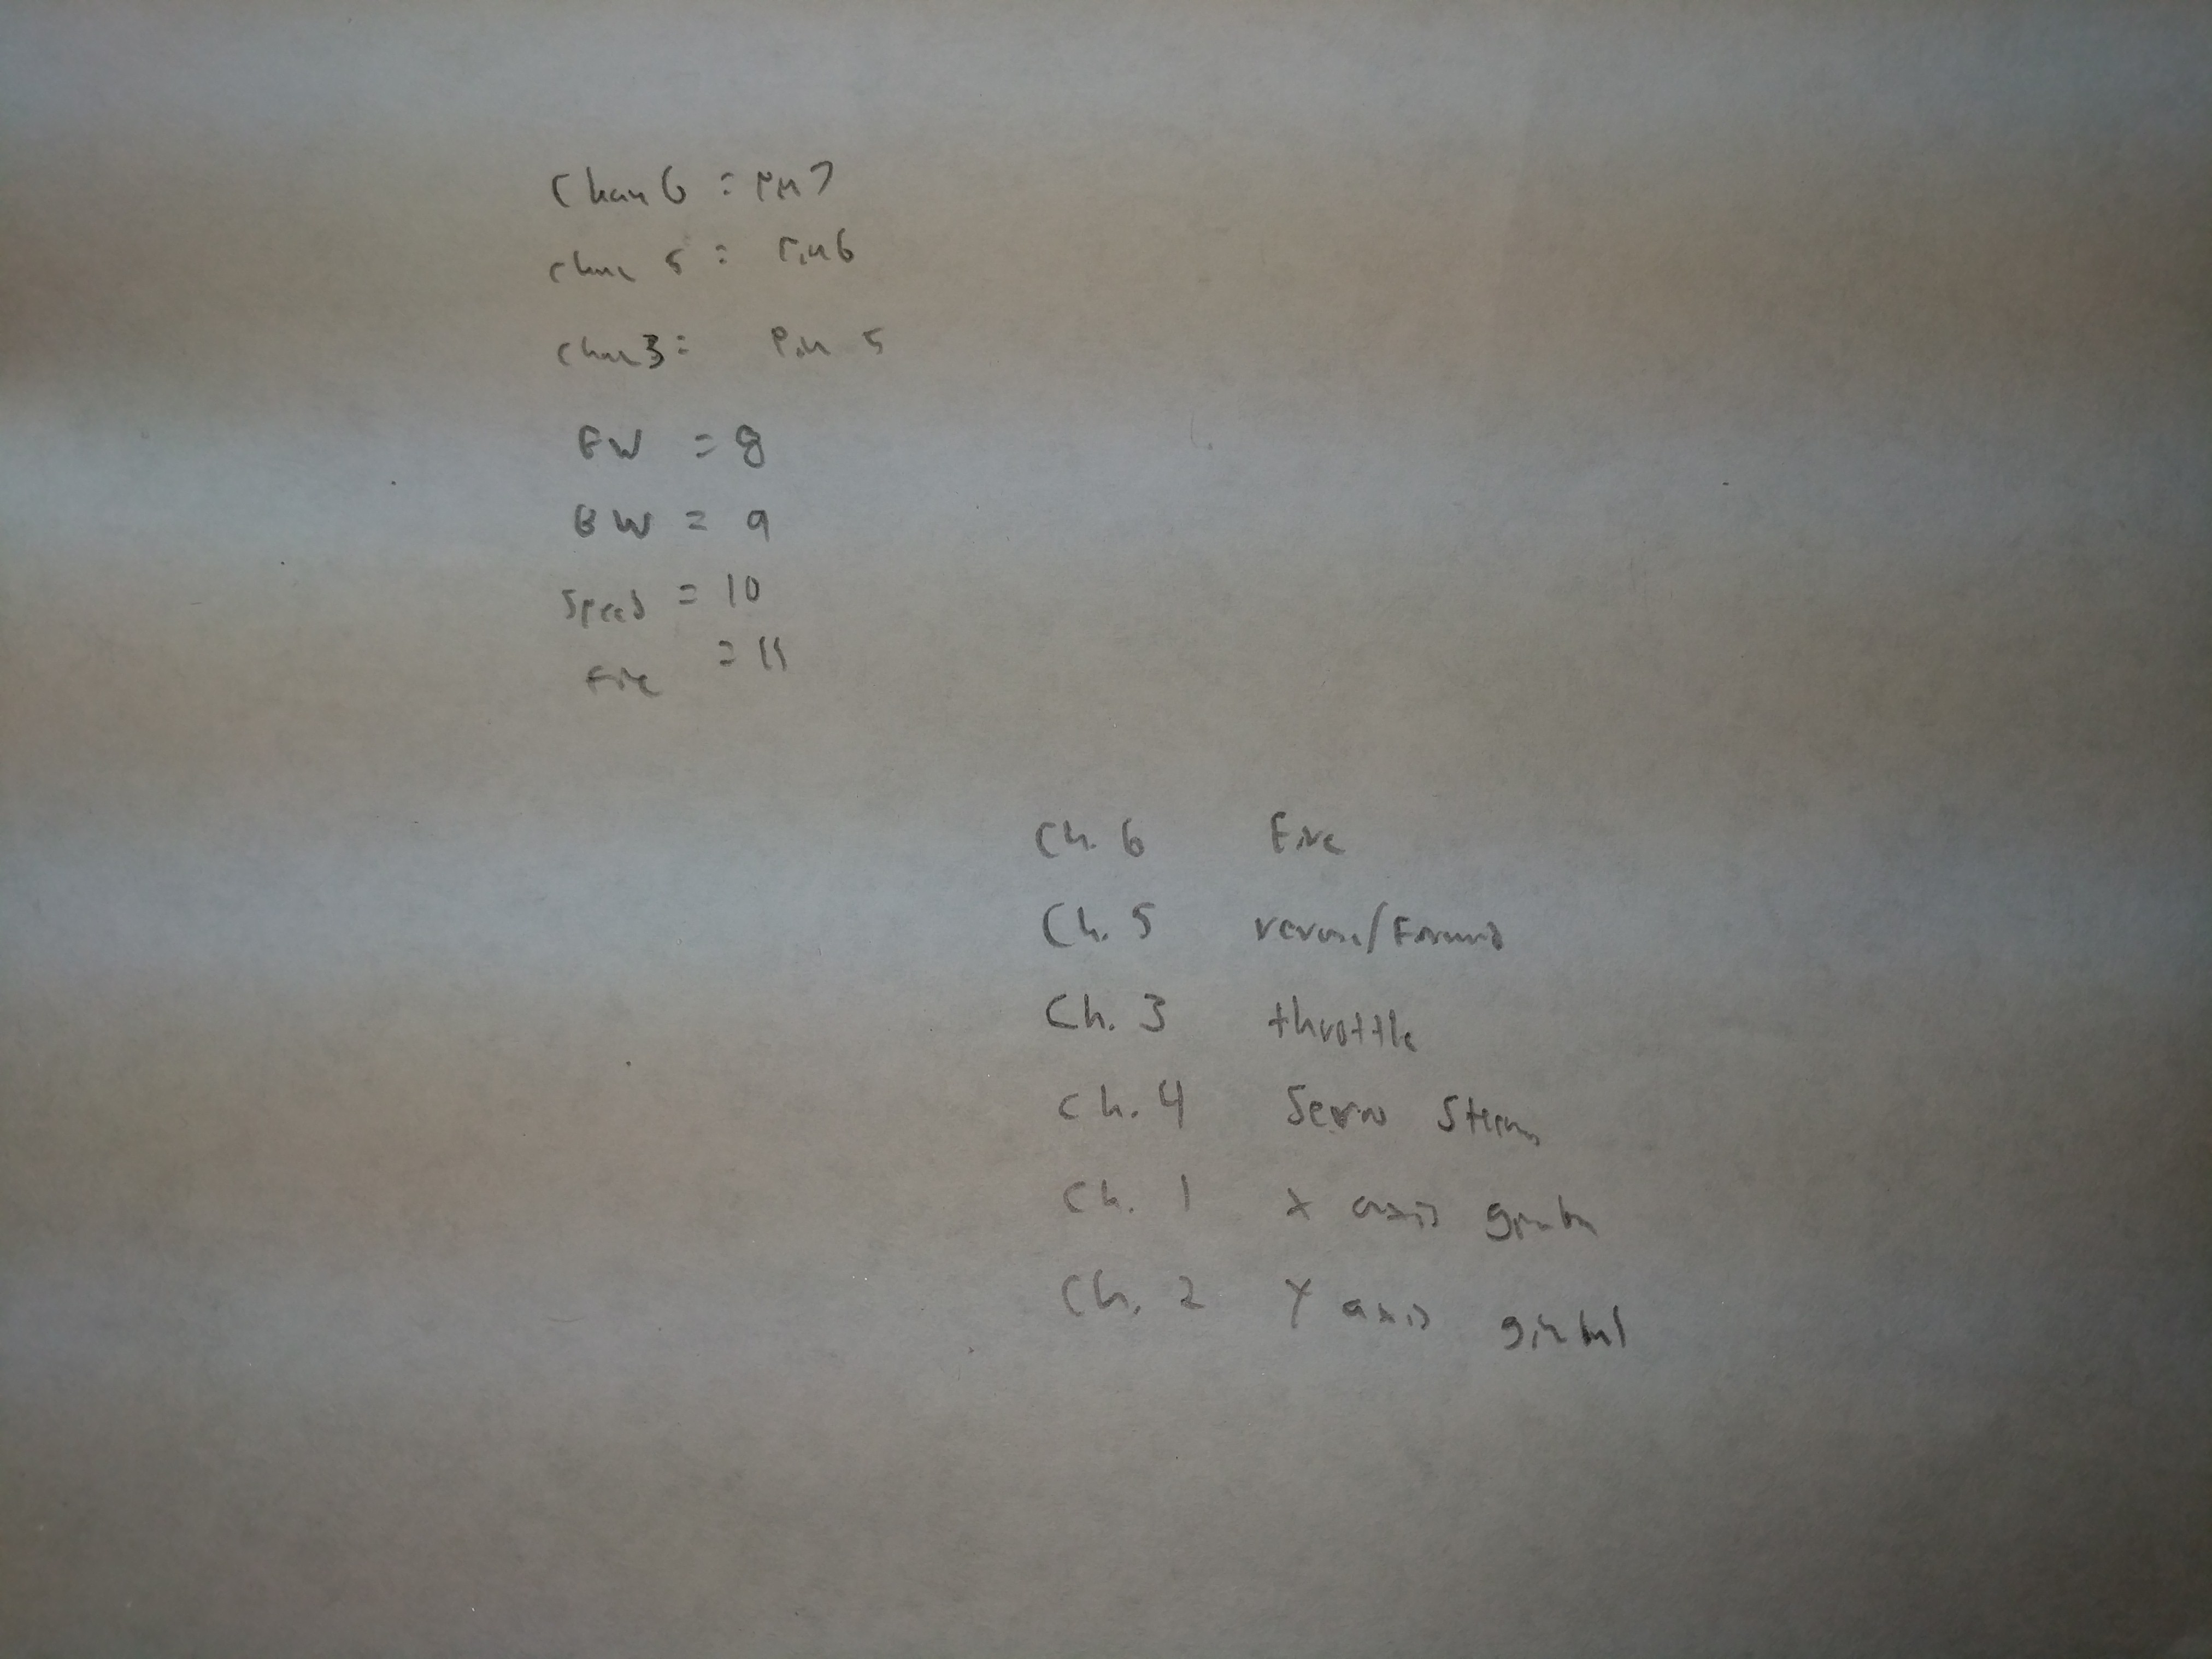 Chan 6 = Pin 7
chan 5 = Pin 6
chan 3 = Pin 5
FW = 8
BW = 9
Speed = 10
Fire = 11
Ch. 6 Fire
Ch. 5 reverse/Forward
Ch. 3 throttle
Ch. 4 Servo
Ch. 1 X axis
Ch. 2 Y axis gimbal